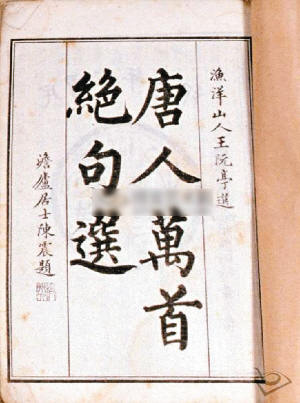 漁洋山人王阮亭選
唐人萬首
絕句選
澹廬居士陳震題